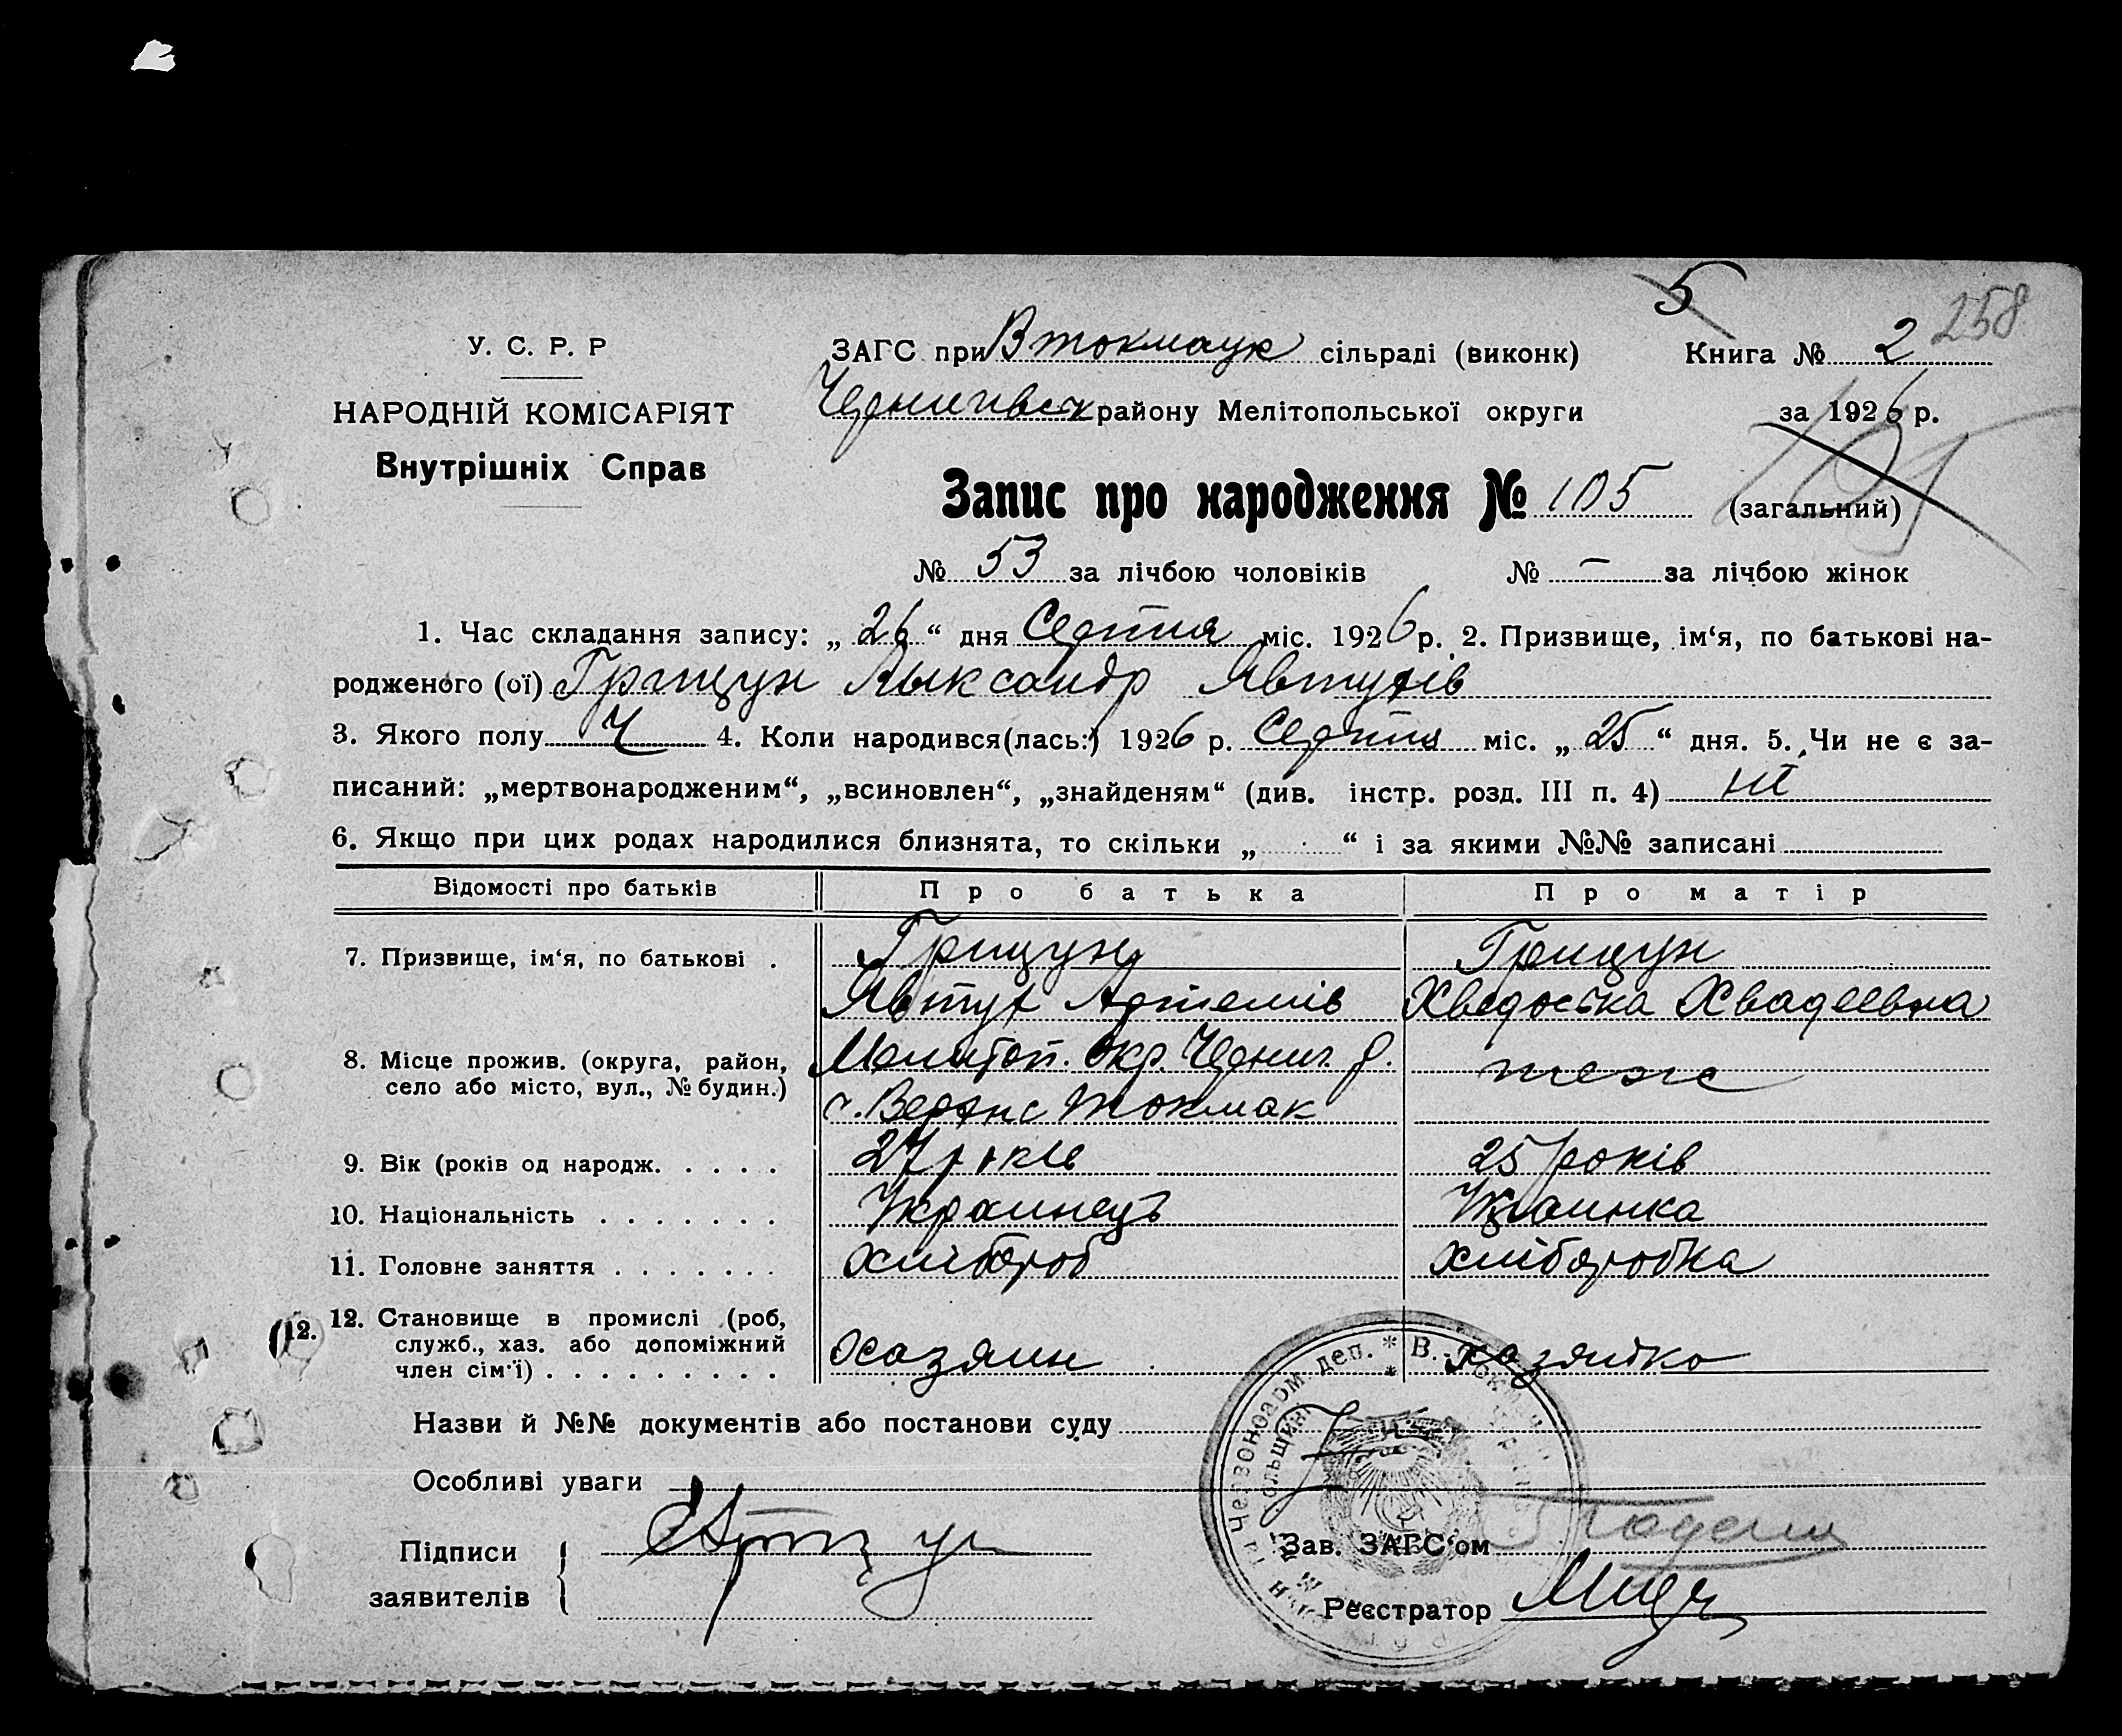 5
У. С. Р. Р
НАРОДНІЙ КОМІСАРІЯТ
Внутрішніх Справ
ЗАГС при В токмаук сільраді (виконк) Книга № 2 258
Чернигівськ району Мелітопольської округи за 1926 р.
Запис про народження № 105 (загальний) 105
№ 53 за лічбою чоловіків № — за лічбою жінок
1. Час складання запису: „ 26 “ дня Серпня міс. 1926 р. 2. Призвище, ім‘я, по батькові на-
родженого (ої) Грицун Александр Явтухів
3. Якого полу Ч 4. Коли народився(лась:) 1926 р. Серпня міс. „ 25 “ дня. 5. Чи не є за-
писаний: „мертвонародженим“, „всиновлен“, „знайденям“ (див. інстр. розд. III п. 4) ні
6. Якщо при цих родах народилися близнята, то скільки „ “ і за якими №№ записані
Відомості про батьків Про батька Про матір
7. Призвище, ім‘я, по батькові . Грицун Грицун
Явтух Артемів Хведоська Хвадеевна
8. Місце прожив. (округа, район, Мелитоп. Окр. Черниг. р. теже
село або місто, вул., № будин.) с. Верхнє Токмак
9. Вік (років од народж. . . . . 27 років 25 років
10. Національність . . . . . . . Украинець Украинка
11. Головне заняття . . . . . . . хлибороб хлиборобка
12. 12. Становище в промислі (роб,
служб., хаз. або допоміжний хазяин хазяйка
член сім‘ї) . . . . . . . . .
Назви й №№ документів або постанови суду
Особливі уваги
Підписи Грицун Зав. ЗАГС‘ом
заявителів Реєстратор